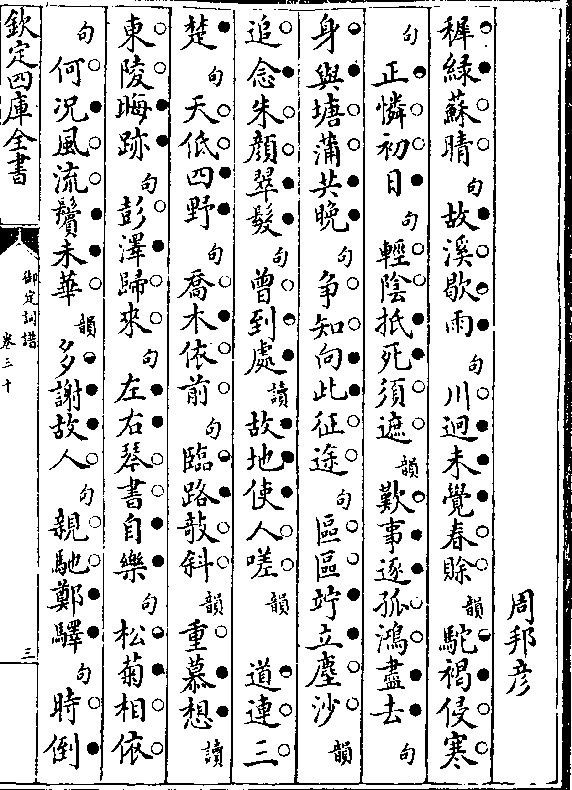 周邦彦
穉緑蘇晴句故溪歇雨句川迥未覺春賖韻駝褐侵寒
句正憐初日句輕陰抵死須遮韻歎事逐孤鴻盡去句
身與塘蒲共晚句争知向此征途句區區竚立塵沙韻
追念朱顔翠髮句曾到處讀故地使人嗟韻道連三
楚句天低四野句喬木依前句臨路敧斜韻重慕想讀
東陵晦跡句彭澤歸來句左右琴書自樂句松菊相依
句何况風流鬢未華韻多謝故人句親馳鄭驛句時倒
欽定四庫全書
御定詞譜
卷三十
三